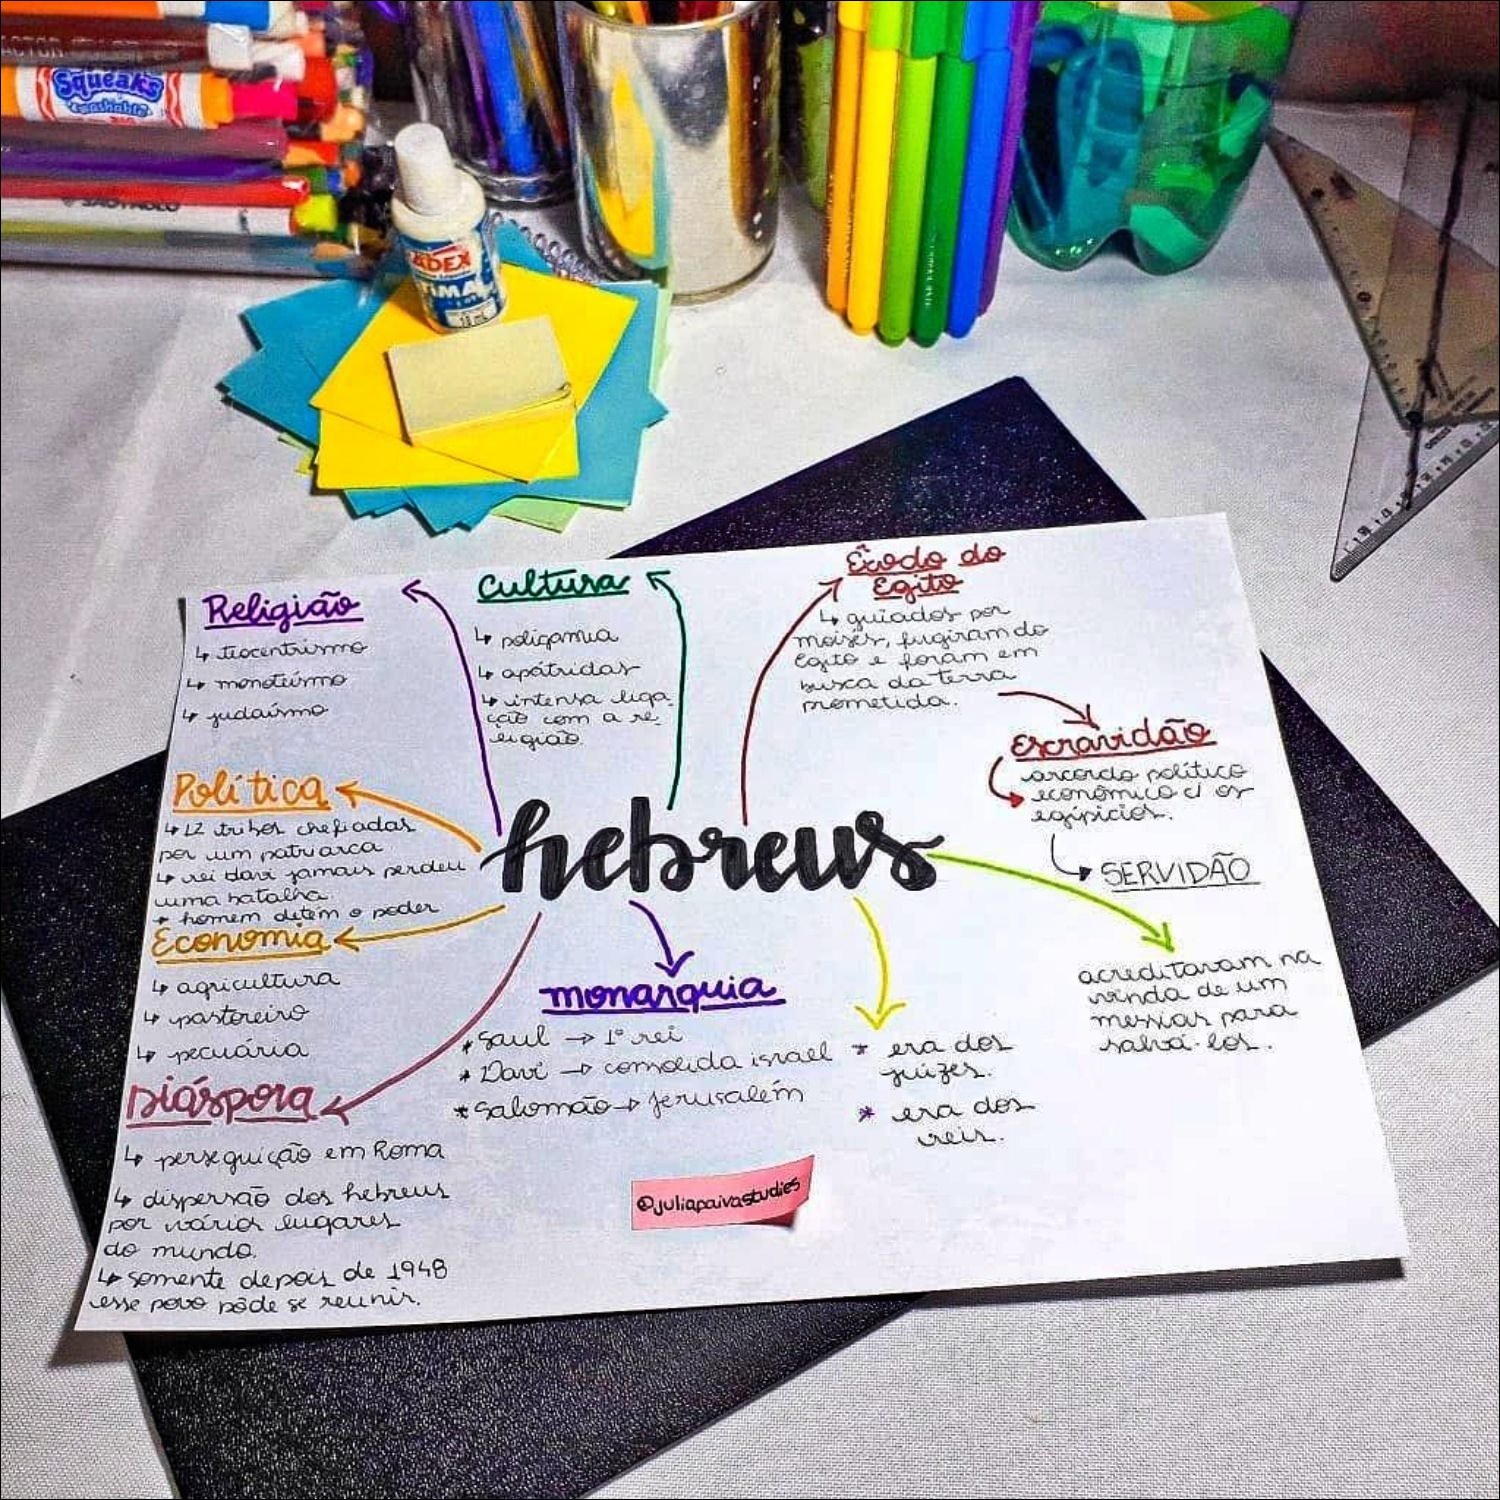 Squeaks
washable
SÃO PAULO
RADEX
18 mL
Religião
↳ teocentrismo
↳ monoteísmo
↳ judaísmo
Cultura
↳ poligamia
↳ apátridas
↳ intensa liga-
ção com a re-
ligião.
Êxodo do
Egito
↳ guiados por
moisés, fugiram do
Egito e foram em
busca da terra
prometida.
Escravidão
acordo político
econômico c/ os
egípicios.
SERVIDÃO
Política
↳ 12 tribos chefiadas
por um patriarca
↳ rei davi jamais perdeu
uma batalha.
→ homem detém o poder
hebreus
Economia
↳ agricultura
↳ pastoreiro
↳ pecuária
monarquia
* Saul → 1º rei
* Davi → consolida israel
* Salomão → Jerusalém
* era dos
juízes.
* era dos
reis.
acreditavam na
vinda de um
messias para
salvá-los.
Diáspora
↳ perseguição em Roma
↳ dispersão dos hebreus
por vários lugares
do mundo.
↳ somente depois de 1948
esse povo pôde se reunir.
@juliapaivastudies